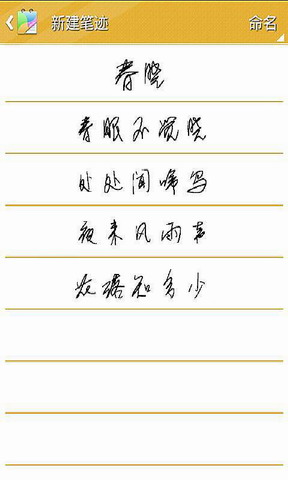 新建笔迹 命名
春晓
春眠不觉晓
处处闻啼鸟
夜来风雨声
花落知多少